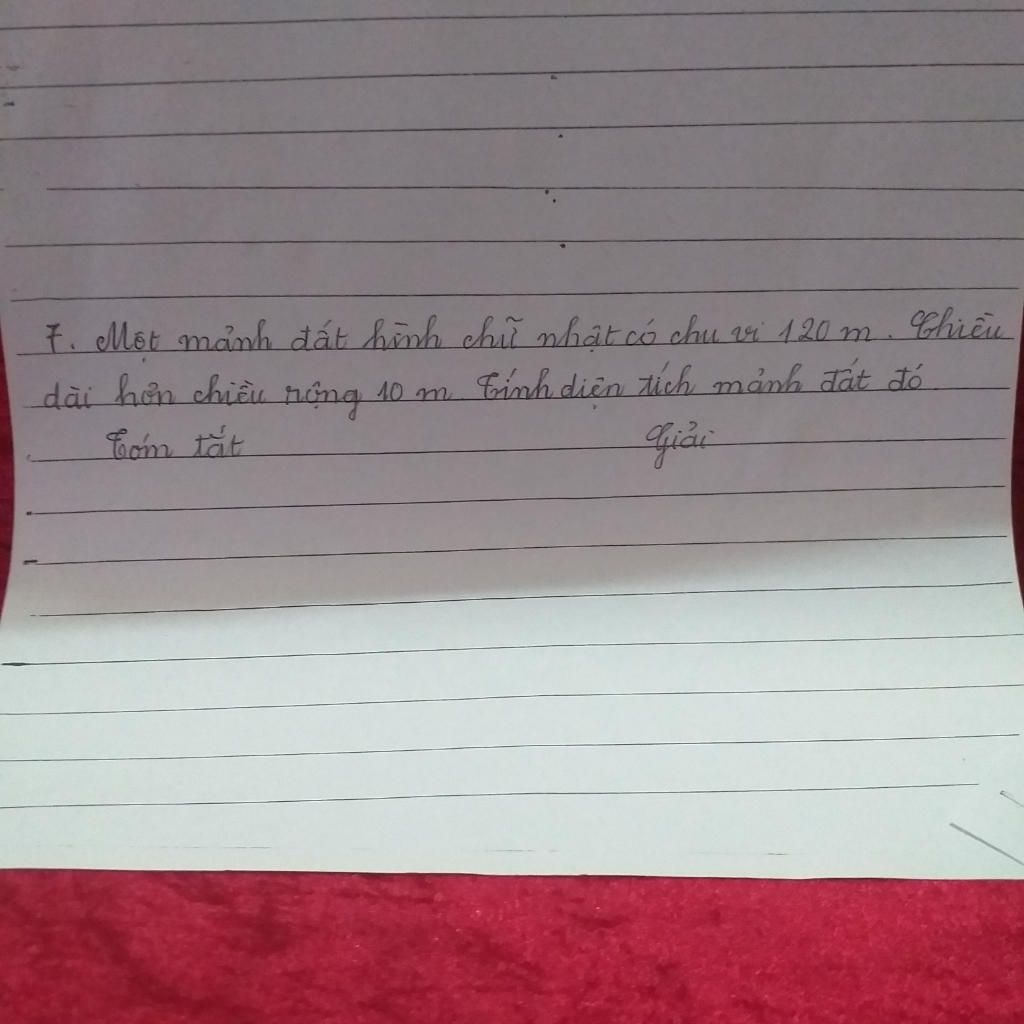 7. Một mảnh đất hình chữ nhật có chu vi 120 m. Chiều
dài hơn chiều rộng 10 m. Tính diện tích mảnh đất đó
Tóm tắt Giải